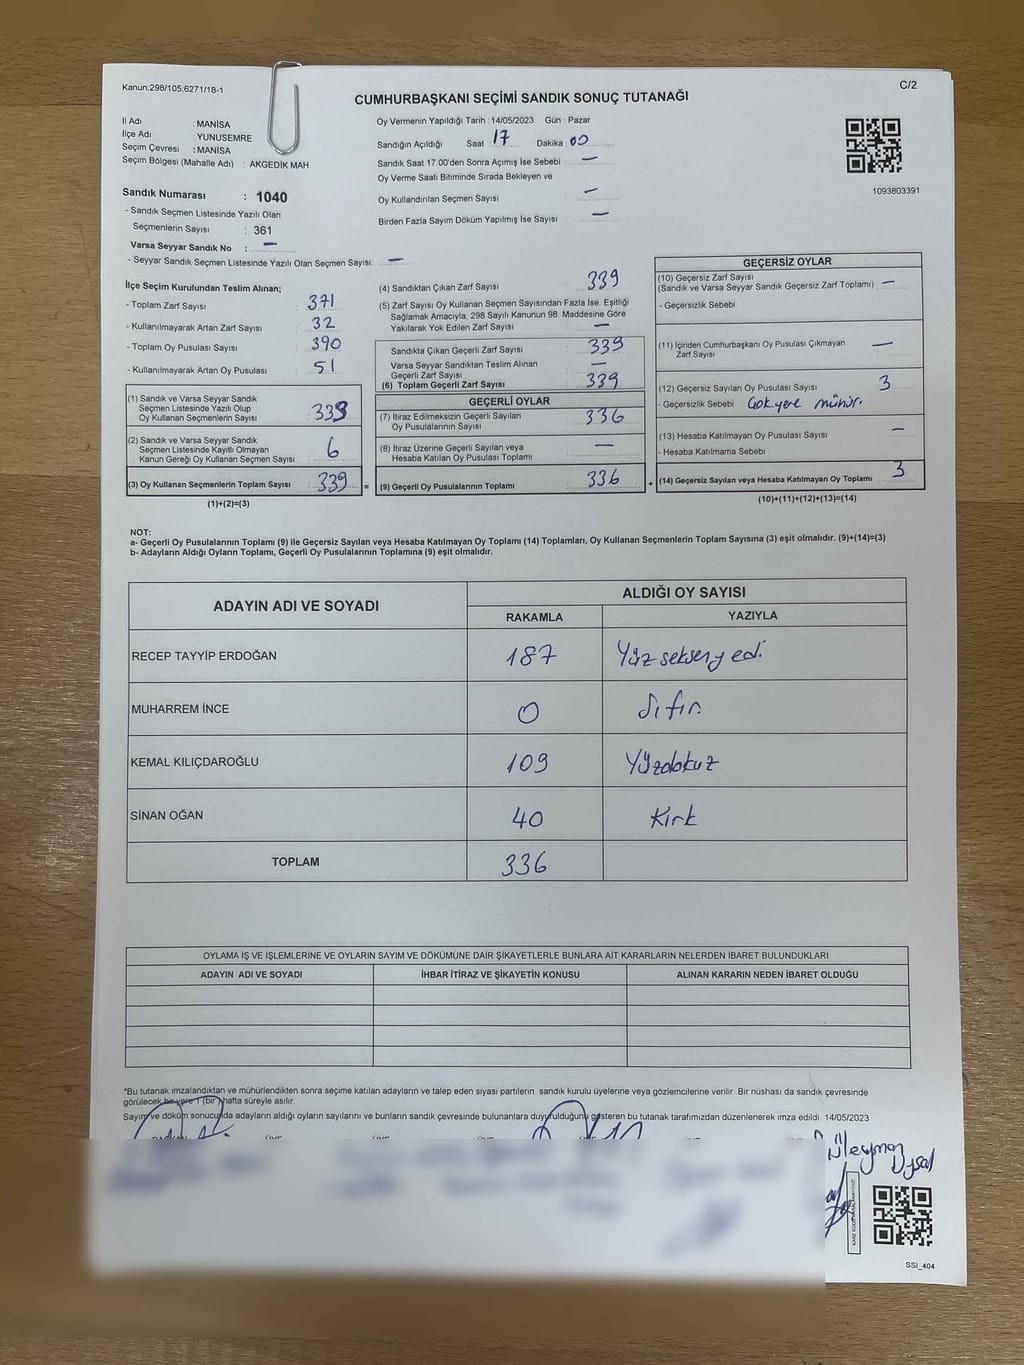 Kanun;298/105;6271/18-1
C/2
CUMHURBAŞKANI SEÇİMİ SANDIK SONUÇ TUTANAĞI
İl Adı : MANİSA
İlçe Adı : YUNUSEMRE
Seçim Çevresi : MANİSA
Seçim Bölgesi (Mahalle Adı) : AKGEDİK MAH
Sandık Numarası : 1040
- Sandık Seçmen Listesinde Yazılı Olan
Seçmenlerin Sayısı : 361
Varsa Seyyar Sandık No : —
- Seyyar Sandık Seçmen Listesinde Yazılı Olan Seçmen Sayısı: —
Oy Vermenin Yapıldığı Tarih : 14/05/2023 Gün : Pazar
Sandığın Açıldığı Saat 17 Dakika 00
Sandık Saat 17:00'den Sonra Açımış İse Sebebi : —
Oy Verme Saati Bitiminde Sırada Bekleyen ve
Oy Kullandırılan Seçmen Sayısı : —
Birden Fazla Sayım Döküm Yapılmış İse Sayısı : —
1093803391
İlçe Seçim Kurulundan Teslim Alınan;
- Toplam Zarf Sayısı : 371
- Kullanılmayarak Artan Zarf Sayısı : 32
- Toplam Oy Pusulası Sayısı : 390
- Kullanılmayarak Artan Oy Pusulası : 51
(1) Sandık ve Varsa Seyyar Sandık
Seçmen Listesinde Yazılı Olup
Oy Kullanan Seçmenlerin Sayısı :
(2) Sandık ve Varsa Seyyar Sandık
Seçmen Listesinde Kayıtlı Olmayan
Kanun Gereği Oy Kullanan Seçmen Sayısı : 6
(3) Oy Kullanan Seçmenlerin Toplam Sayısı : 339 =
(1)+(2)=(3)
(4) Sandıktan Çıkan Zarf Sayısı : 339
(5) Zarf Sayısı Oy Kullanan Seçmen Sayısından Fazla İse, Eşitliği
Sağlamak Amacıyla, 298 Sayılı Kanunun 98. Maddesine Göre
Yakılarak Yok Edilen Zarf Sayısı : —
Sandıkta Çıkan Geçerli Zarf Sayısı : 339
Varsa Seyyar Sandıktan Teslim Alınan
Geçerli Zarf Sayısı : —
(6) Toplam Geçerli Zarf Sayısı : 339
GEÇERLİ OYLAR
(7) İtiraz Edilmeksizin Geçerli Sayılan
Oy Pusulalarının Sayısı : 336
(8) İtiraz Üzerine Geçerli Sayılan veya
Hesaba Katılan Oy Pusulası Toplamı : —
(9) Geçerli Oy Pusulalarının Toplamı : 336 +
GEÇERSİZ OYLAR
(10) Geçersiz Zarf Sayısı
(Sandık ve Varsa Seyyar Sandık Geçersiz Zarf Toplamı) : —
- Geçersizlik Sebebi :
(11) İçinden Cumhurbaşkanı Oy Pusulası Çıkmayan
Zarf Sayısı : —
(12) Geçersiz Sayılan Oy Pusulası Sayısı : 3
- Geçersizlik Sebebi : Çok yere mühür.
(13) Hesaba Katılmayan Oy Pusulası Sayısı : —
- Hesaba Katılmama Sebebi
(14) Geçersiz Sayılan veya Hesaba Katılmayan Oy Toplamı : 3
(10)+(11)+(12)+(13)=(14)
NOT:
a- Geçerli Oy Pusulalarının Toplamı (9) ile Geçersiz Sayılan veya Hesaba Katılmayan Oy Toplamı (14) Toplamları, Oy Kullanan Seçmenlerin Toplam Sayısına (3) eşit olmalıdır. (9)+(14)=(3)
b- Adayların Aldığı Oyların Toplamı, Geçerli Oy Pusulalarının Toplamına (9) eşit olmalıdır.
ADAYIN ADI VE SOYADI
ALDIĞI OY SAYISI
RAKAMLA YAZIYLA
RECEP TAYYİP ERDOĞAN 187 Yüz seksen yedi
MUHARREM İNCE 0 Sıfır
KEMAL KILIÇDAROĞLU 109 Yüzdokuz
SİNAN OĞAN 40 Kırk
TOPLAM 336
OYLAMA İŞ VE İŞLEMLERİNE VE OYLARIN SAYIM VE DÖKÜMÜNE DAİR ŞİKAYETLERLE BUNLARA AİT KARARLARIN NELERDEN İBARET BULUNDUKLARI
ADAYIN ADI VE SOYADI İHBAR İTİRAZ VE ŞİKAYETİN KONUSU ALINAN KARARIN NEDEN İBARET OLDUĞU
*Bu tutanak imzalandıktan ve mühürlendikten sonra seçime katılan adayların ve talep eden siyasi partilerin sandık kurulu üyelerine veya gözlemcilerine verilir. Bir nüshası da sandık çevresinde
görülecek bir yere 1 (bir) hafta süreyle asılır.
Sayım ve döküm sonucunda adayların aldığı oyların sayılarını ve bunların sandık çevresinde bulunanlara duyurulduğunu gösteren bu tutanak tarafımızdan düzenlenerek imza edildi. 14/05/2023
ÜYE ÜYE ÜYE
Süleyman
SSI_404